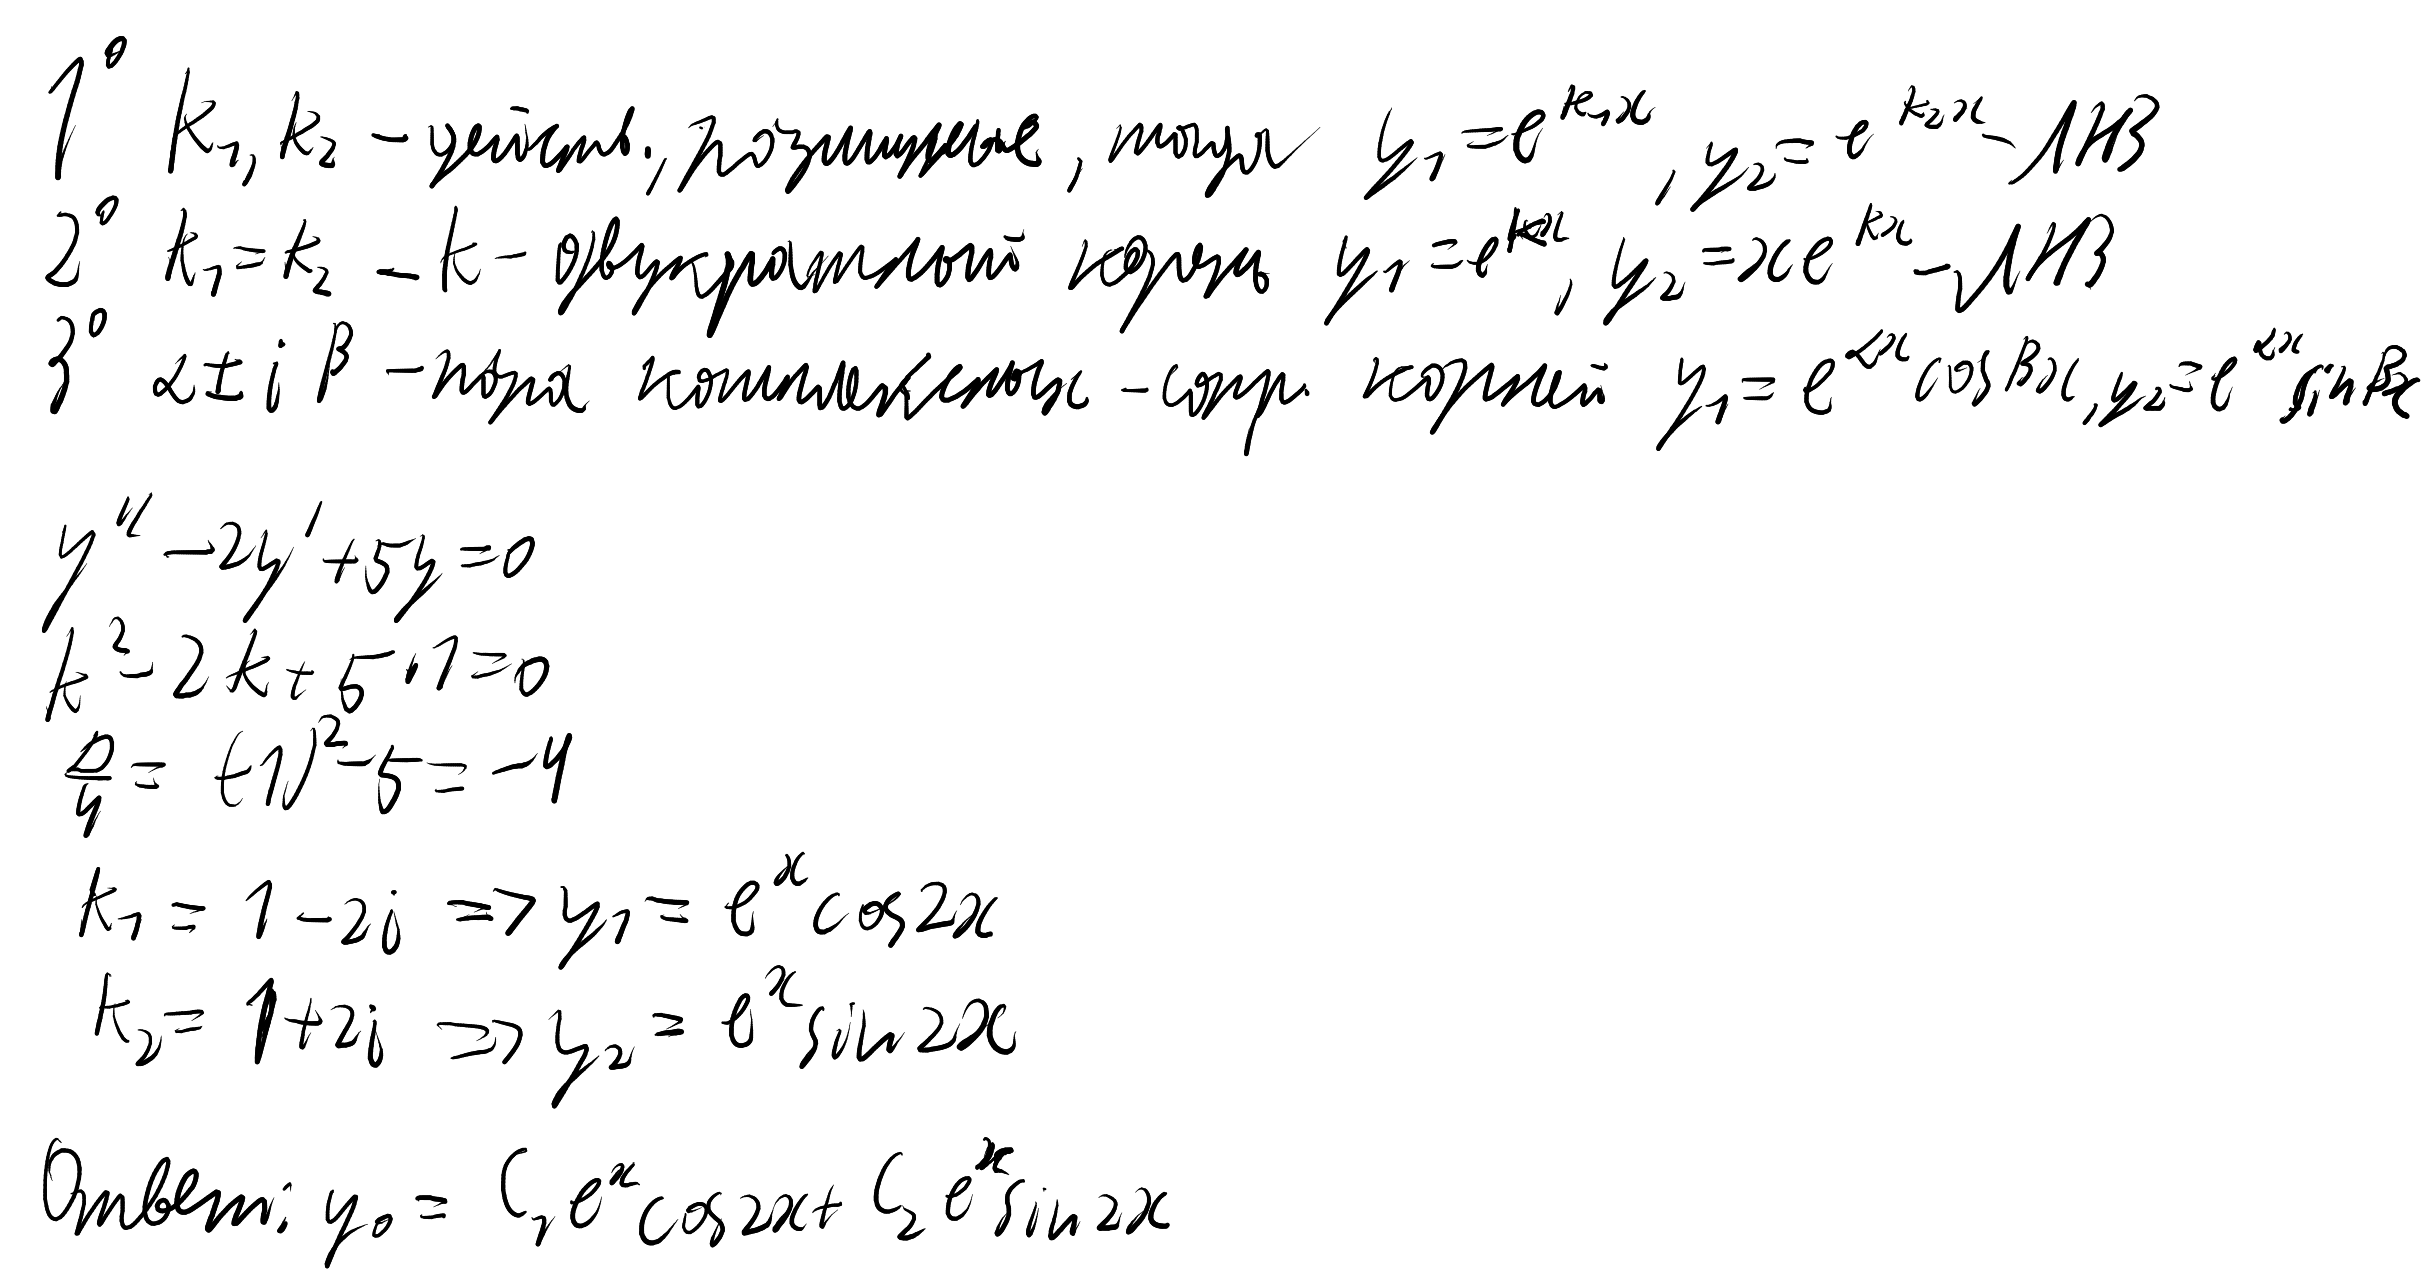 1° k₁, k₂ – действ., различные, тогда y₁ = e^{k₁x}, y₂ = e^{k₂x} – ЛНЗ
2° k₁ = k₂ – k – двукратный корень y₁ = e^{kx}, y₂ = xe^{kx} – ЛНЗ
3° α ± iβ – пара комплексных – сопр. корней y₁ = e^{αx} cos βx, y₂ = e^{αx} sin βx
y'' – 2y' + 5y = 0
k² – 2k + 5·1 = 0
D/4 = (–1)² – 5 = –4
k₁ = 1 – 2i => y₁ = e^x cos 2x
k₂ = 1 + 2i => y₂ = e^x sin 2x
Ответ: y₀ = C₁ e^x cos 2x + C₂ e^x sin 2x